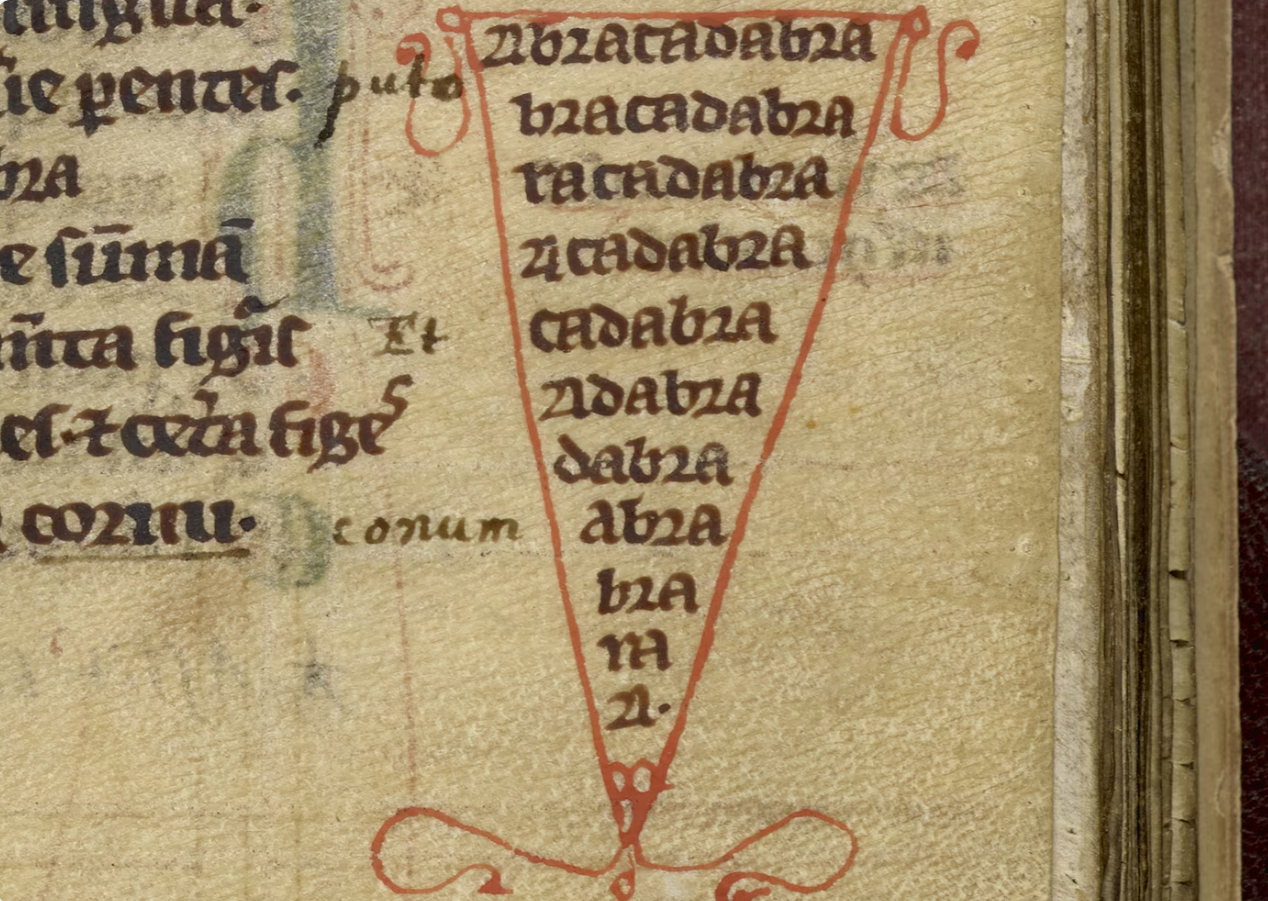 puto
bra
e sūmā
nn̄ta figīs
Et
es ⁊ cet̾a fige
s
cornu.
conum
Abracadabra
bracadabra
racadabra
Acadabra
cadabra
Adabra
dabra
abra
bra
ra
A.